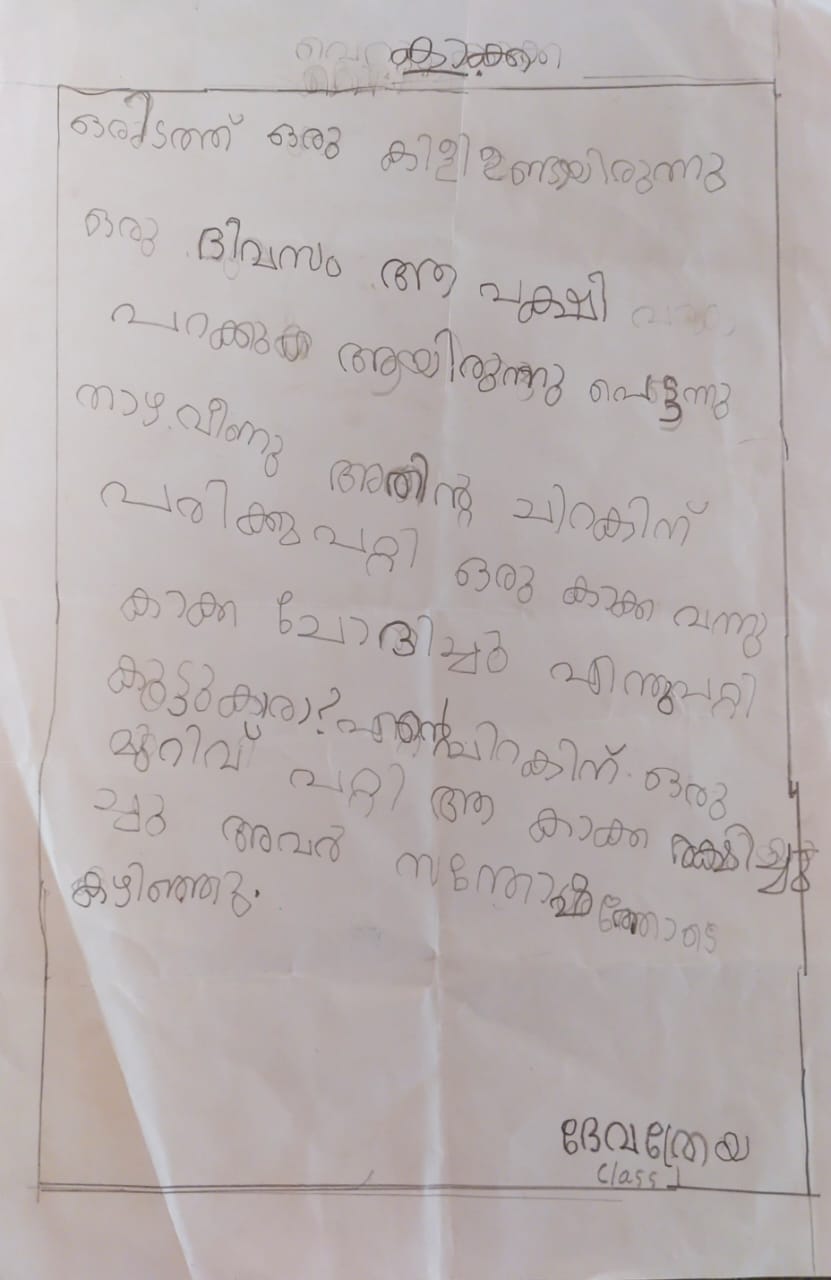 കാക്ക
ഒരിടത്ത് ഒരു കിളി ഉണ്ടായിരുന്നു
ഒരു ദിവസം ആ പക്ഷി
പറക്കുക ആയിരുന്നു പെട്ടന്നു
താഴ വീണു അതിന്റ ചിറകിന്
പരിക്കു പറ്റി ഒരു കാക്ക വന്നു
കാക്ക ചോദിച്ചു എന്തുപറ്റി
കൂട്ടുകാരാ? എന്റെ ചിറകിന് ഒരു
മുറിവ് പറ്റി ആ കാക്ക രക്ഷിച്ചു
ച്ചു അവർ സന്തോഷത്തോടെ
കഴിഞ്ഞു.
ദേവത്രേയ
Class 1